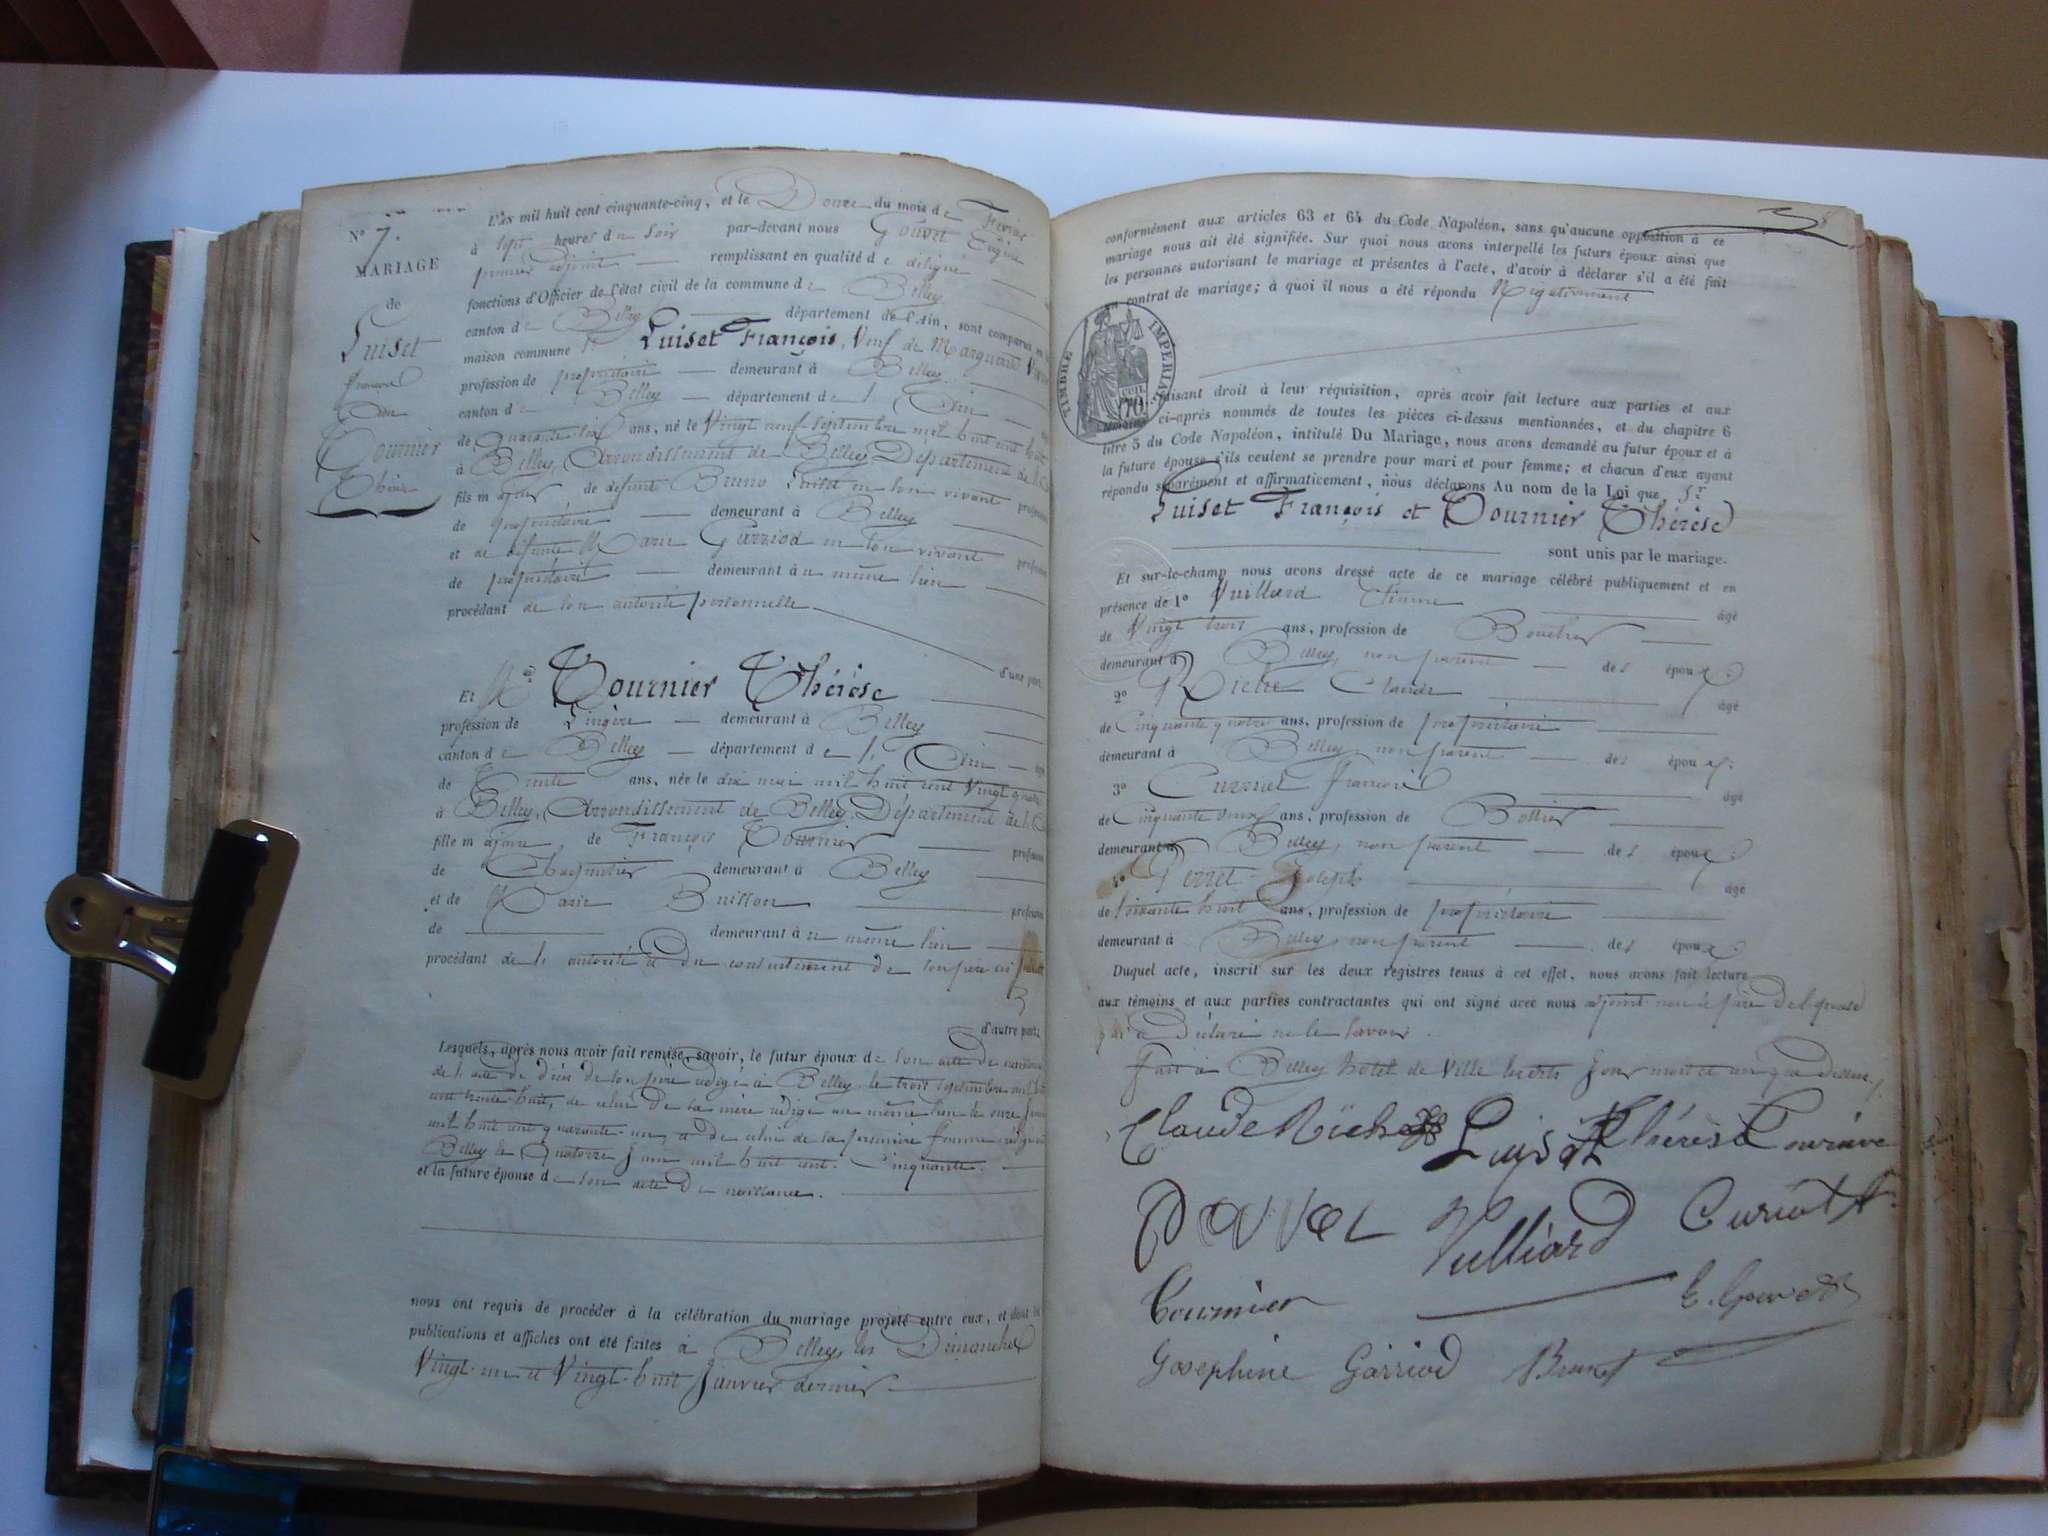 L'an mil huit cent cinquante-cinq, et le Douze du mois de Février
N° 7.
à sept heures du soir par-devant nous Gouvet Eugène
premier adjoint remplissant en qualité de délégué
MARIAGE
fonctions d'Officier de l'état civil de la commune de Belley
de
canton de Belley département de l'Ain, sont comparus en la
Luiset
maison commune Sr Luiset François, Veuf de Marguerite
françois
profession de propriétaire demeurant à Belley
et
canton de Belley département de l'Ain
Tournier
de quarante six ans, né le Vingt neuf septembre mil huit cent huit
Thérèse
à Belley, Arrondissement de Belley Département de l'Ain
fils majeur de défunt Bruno Luiset en son vivant profession
de propriétaire demeurant à Belley
et de défunte Marie Garriod en son vivant profession
de propriétaire demeurant au même lieu
procédant de son autorité personnelle
d'une part,
Et Mlle Tournier Thérèse
profession de Lingère demeurant à Belley
canton de Belley département de l'Ain
de Trente ans, née le dix mai mil huit cent Vingt quatre
à Belley, Arrondissement de Belley, Département de l'Ain
fille majeure de François Tournier profession
de Charpentier demeurant à Belley
et de Marie Buisson profession
de demeurant au même lieu
procédant de l'autorité et du consentement de son père ici présent
d'autre part,
Lesquels, après nous avoir fait remise, savoir, le futur époux de son acte de naissance
de l'acte de décès de son père rédigé à Belley le trois septembre mil huit
cent trente-huit, de celui de sa mère rédigé au même lieu le onze
mil huit cent quarante-un, et de celui de sa première femme rédigé à
Belley le Quatorze Juin mil huit cent Cinquante.
et la future épouse de son acte de naissance.
nous ont requis de procéder à la célébration du mariage projeté entre eux, et dont les
publications et affiches ont été faites à Belley les Dimanches
Vingt-un et Vingt-huit Janvier dernier
conformément aux articles 63 et 64 du Code Napoléon, sans qu'aucune opposition à ce
mariage nous ait été signifiée. Sur quoi nous avons interpellé les futurs époux ainsi que
les personnes autorisant le mariage et présentes à l'acte, d'avoir à déclarer s'il a été fait
un contrat de mariage; à quoi il nous a été répondu Négativement
TIMBRE IMPERIAL
70
Faisant droit à leur réquisition, après avoir fait lecture aux parties et aux
ci-après nommés de toutes les pièces ci-dessus mentionnées, et du chapitre 6
titre 5 du Code Napoléon, intitulé Du Mariage, nous avons demandé au futur époux et à
la future épouse s'ils veulent se prendre pour mari et pour femme; et chacun d'eux ayant
répondu séparément et affirmativement, nous déclarons Au nom de la Loi que Sr
Luiset François et Tournier Thérèse
sont unis par le mariage.
Et sur-le-champ nous avons dressé acte de ce mariage célébré publiquement et en
présence de 1° Vuillard Etienne âgé
de Vingt trois ans, profession de Boucher
demeurant à Belley, non parent des époux.
2° Riche Claude âgé
de Cinquante quatre ans, profession de propriétaire
demeurant à Belley, non parent des époux.
3° françois âgé
de Cinquante deux ans, profession de Bottier
demeurant à Belley, non parent des époux.
4° Perret Joseph âgé
de soixante huit ans, profession de propriétaire
demeurant à Belley non parent des époux
Duquel acte, inscrit sur les deux registres tenus à cet effet, nous avons fait lecture
aux témoins et aux parties contractantes qui ont signé avec nous adjoint
a déclaré ne le savoir.
fait à Belley hotel de Ville les dits Jour mois et an que dessus
Claude Riche Luiset Thérèse
Vulliard
Tournier E. Gouvet
Josephine Garriod Brunet